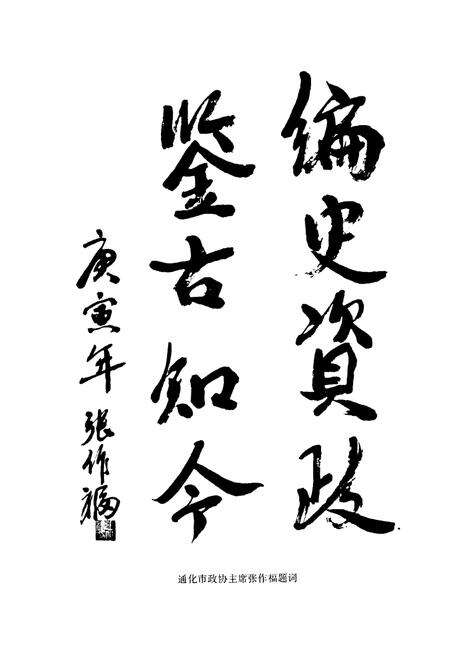 编史資政
鉴古知今
庚寅年 张作福
通化市政协主席张作福题词